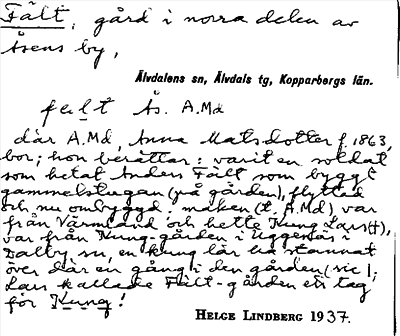 Fält, gård i norra delen av
Åsens by,
Älvdalens sn, Älvdals tg, Kopparbergs län.
fɐlt Ås. A.Md
där A.Md, Anna Matsdotter f. 1863,
bor; hon berättar: varit en soldat
som hetat Anders Fält som byggt
gammelstugan (på gården), flyttad
och nu ombyggd; maken (t. A.Md), var
från Värmland och hette Kung Lars (†),
var från Kung-gården i Uggenäs i
Dalby sn, en kung lär ha stannat
över där en gång i den gården (sic);
Lars kallade Fält-gården ett tag
för Kung!
HELGE LINDBERG 1937.